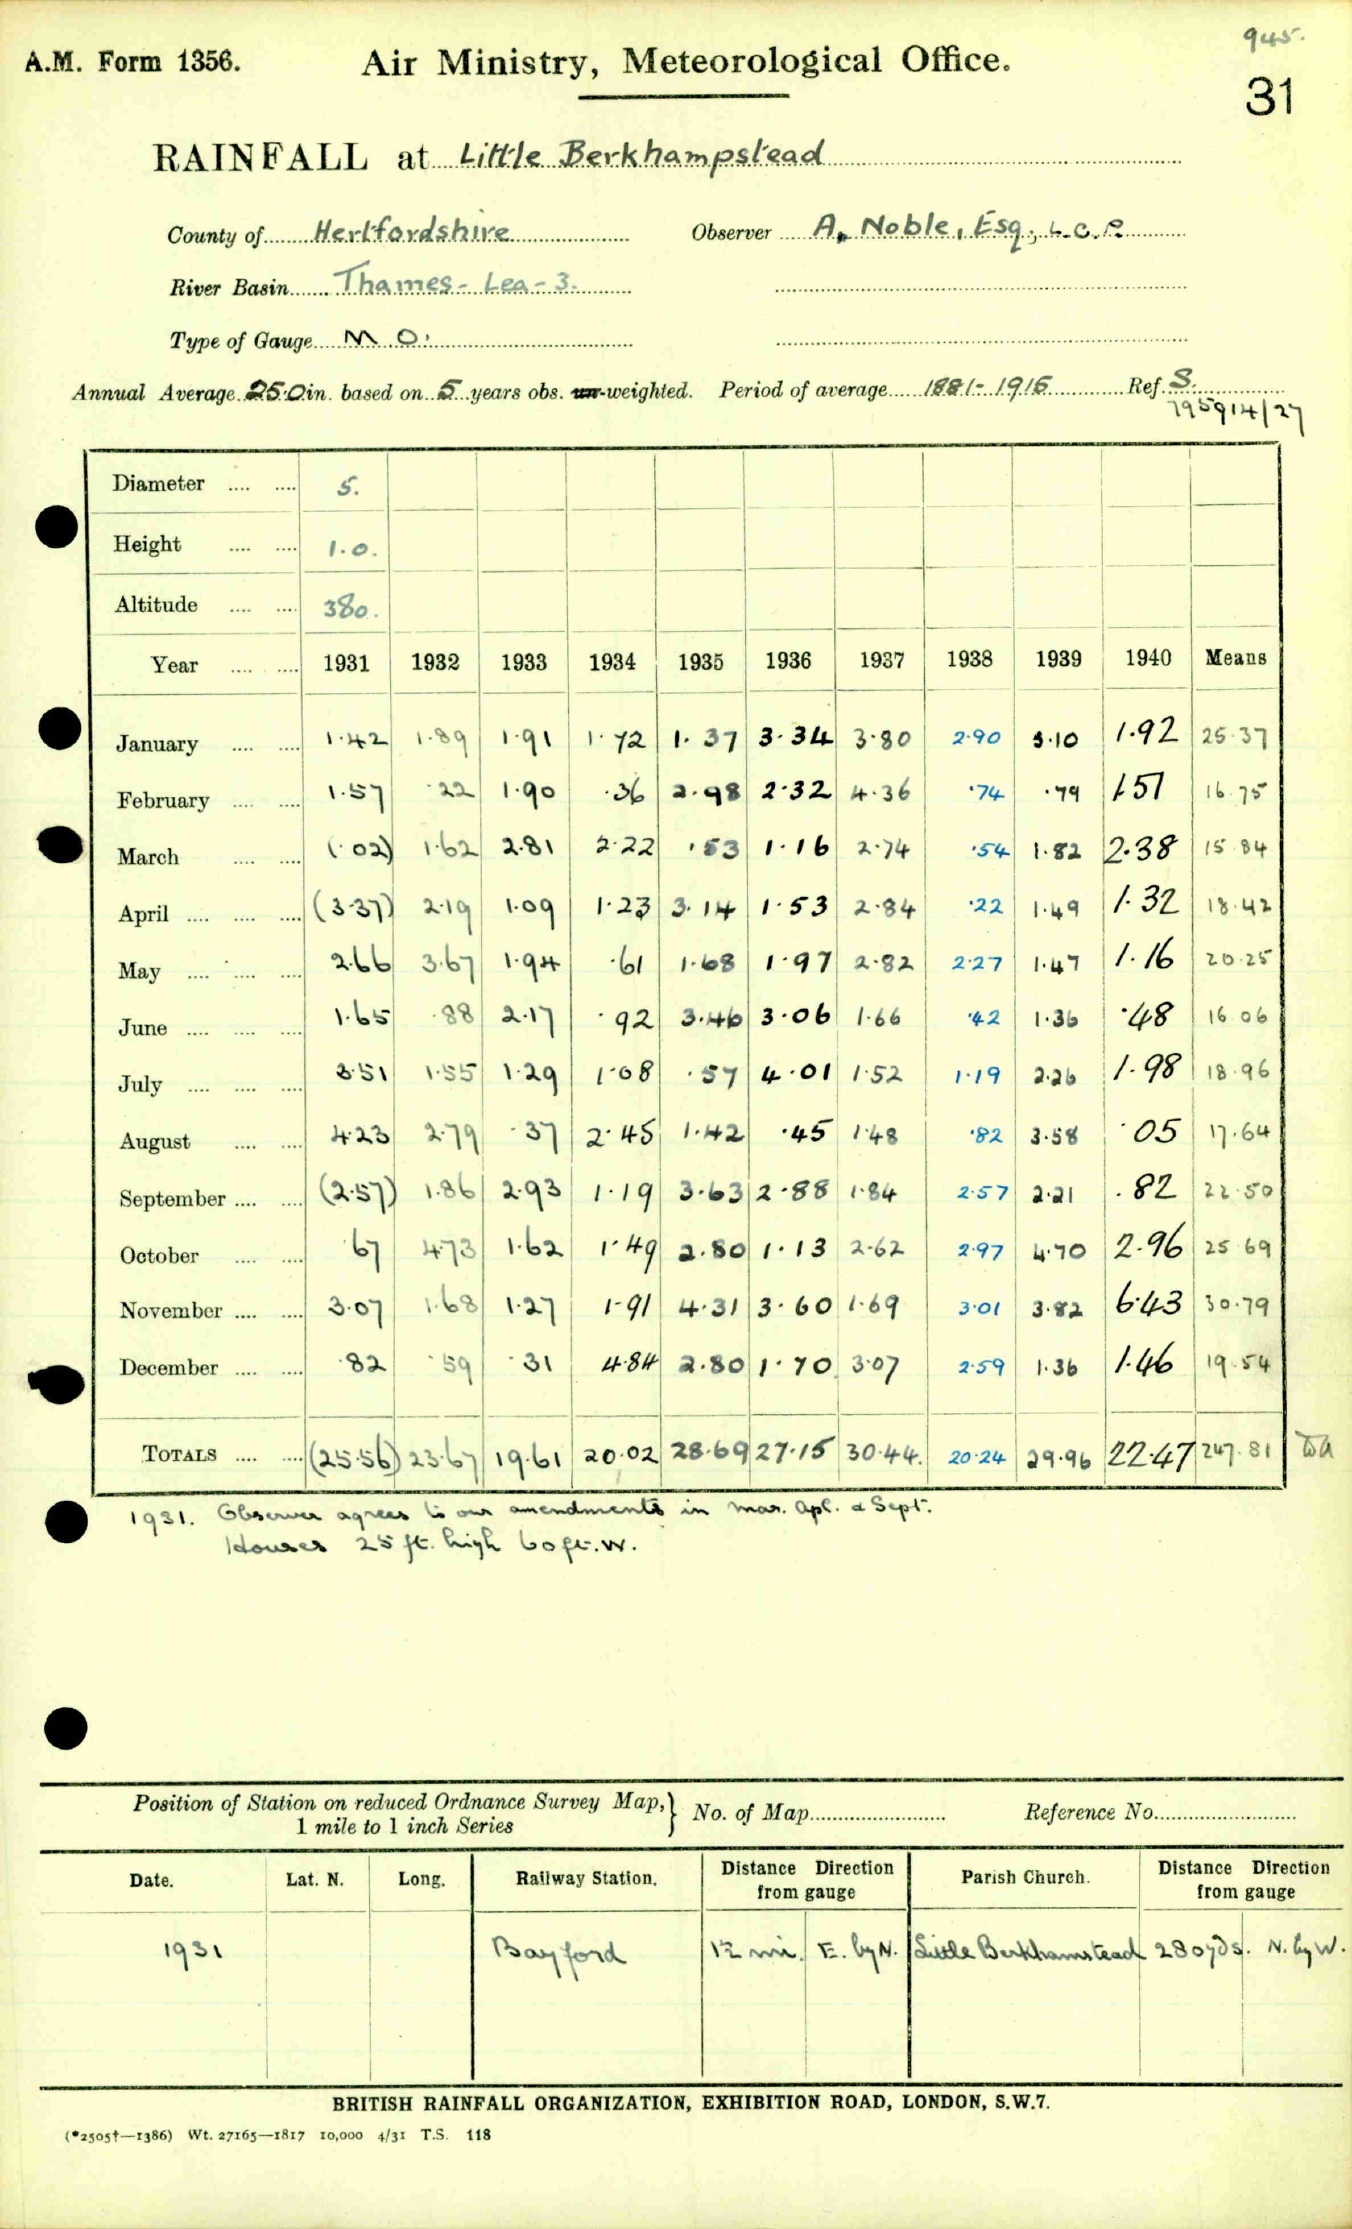 945.
31
A.M. Form 1356.
Air Ministry, Meteorological Office.
RAINFALL at Little Berkhampstead
County of Hertfordshire Observer A. Noble, Esq., L.C.P.
River Basin Thames - Lea - 3.
Type of Gauge M.O.
Annual Average 25.0 in. based on 5 years obs. un-weighted. Period of average 1881-1915 Ref. S.
795914/27
Diameter .... .... 5.
Height .... .... 1.0.
Altitude .... .... 380.
Year .... .... 1931 1932 1933 1934 1935 1936 1937 1938 1939 1940 Means
January .... .... 1.42 1.89 1.91 1.72 1.37 3.34 3.80 2.90 5.10 1.92 25.37
February .... .... 1.57 .22 1.90 .36 2.98 2.32 4.36 .74 .79 1.51 16.75
March .... .... (.02) 1.62 2.81 2.22 .53 1.16 2.74 .54 1.82 2.38 15.84
April .... .... .... (3.37) 2.19 1.09 1.23 3.14 1.53 2.84 .22 1.49 1.32 18.42
May .... .... .... 2.66 3.67 1.94 .61 1.68 1.97 2.82 2.27 1.47 1.16 20.25
June .... .... .... 1.65 .88 2.17 .92 3.46 3.06 1.66 .42 1.36 .48 16.06
July .... .... .... 3.51 1.55 1.29 1.08 .57 4.01 1.52 1.19 2.26 1.98 18.96
August .... .... 4.23 2.79 .37 2.45 1.42 .45 1.48 .82 3.58 .05 17.64
September .... .... (2.57) 1.86 2.93 1.19 3.63 2.88 1.84 2.57 2.21 .82 22.50
October .... .... .67 4.73 1.62 1.49 2.80 1.13 2.62 2.97 4.70 2.96 25.69
November .... .... 3.07 1.68 1.27 1.91 4.31 3.60 1.69 3.01 3.82 6.43 30.79
December .... .... .82 .59 .31 4.84 2.80 1.70 3.07 2.59 1.36 1.46 19.54
TOTALS .... .... (25.56) 23.67 19.61 20.02 28.69 27.15 30.44. 20.24 29.96 22.47 247.81
1931. Observer agrees to our amendments in Mar. Apl. & Sept.
Houses 25 ft. high 60 ft. W.
Position of Station on reduced Ordnance Survey Map, 1 mile to 1 inch Series } No. of Map Reference No.
Date. Lat. N. Long. Railway Station. Distance Direction from gauge Parish Church. Distance Direction from gauge
1931 Bayford 1½ mi. E. by N. Little Berkhamstead 280 yds. N. by W.
BRITISH RAINFALL ORGANIZATION, EXHIBITION ROAD, LONDON, S.W.7.
(*2505†—1386) Wt. 27165—1817 10,000 4/31 T.S. 118